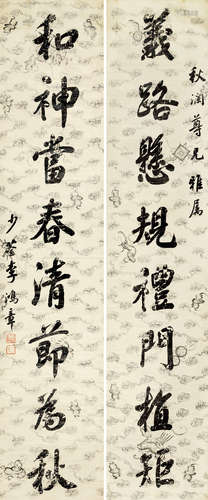 秋潤尊兄雅屬
義路懸規禮門植矩
和神當春清節為秋
少荃李鴻章